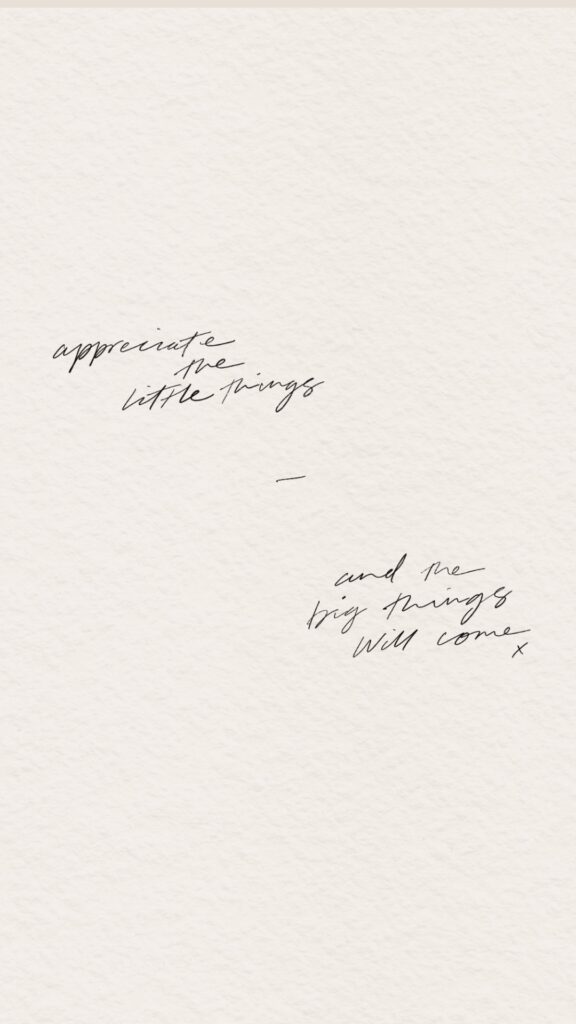 appreciate
the
little things
—
and the
big things
will come
x